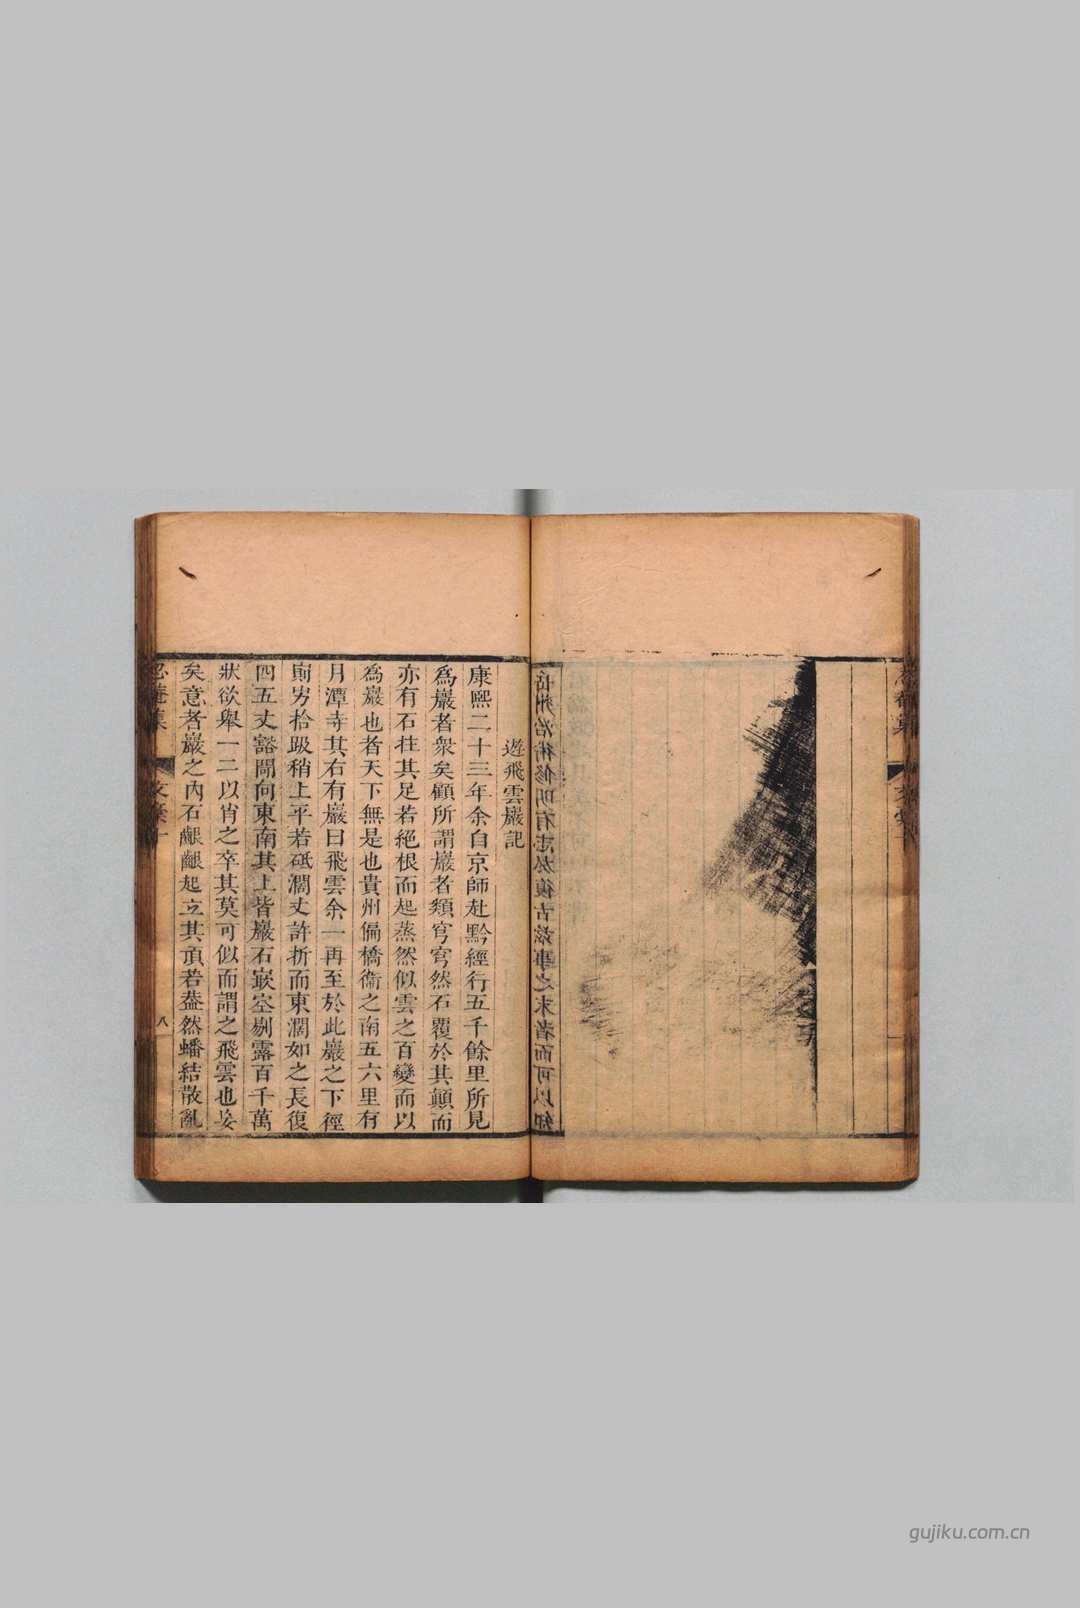 岳州治術修明有志於復古茲事之末者而可以知
遊飛雲巖記
康熙二十三年余自京師赴黔經行五千餘里所見
爲巖者衆矣顧所謂巖者類穹穹然石覆於其顛而
亦有石拄其足若絶根而起蒸然似雲之百變而以
爲巖也者天下無是也貴州偏橋衞之南五六里有
月潭寺其右有巖曰飛雲余一再至於此巖之下徑
前男拾趿稍上平若砥濶丈許折而東濶如之長復
四五丈豁閜向東南其上皆巖石嵌空剔露百千萬
狀欲舉一二以肖之卒其莫可似而謂之飛雲也妄
矣意者巖之內石齦齦起立其頂若葢然蟠結散亂
忍菴集
文稾
八
gujiku.com.cn